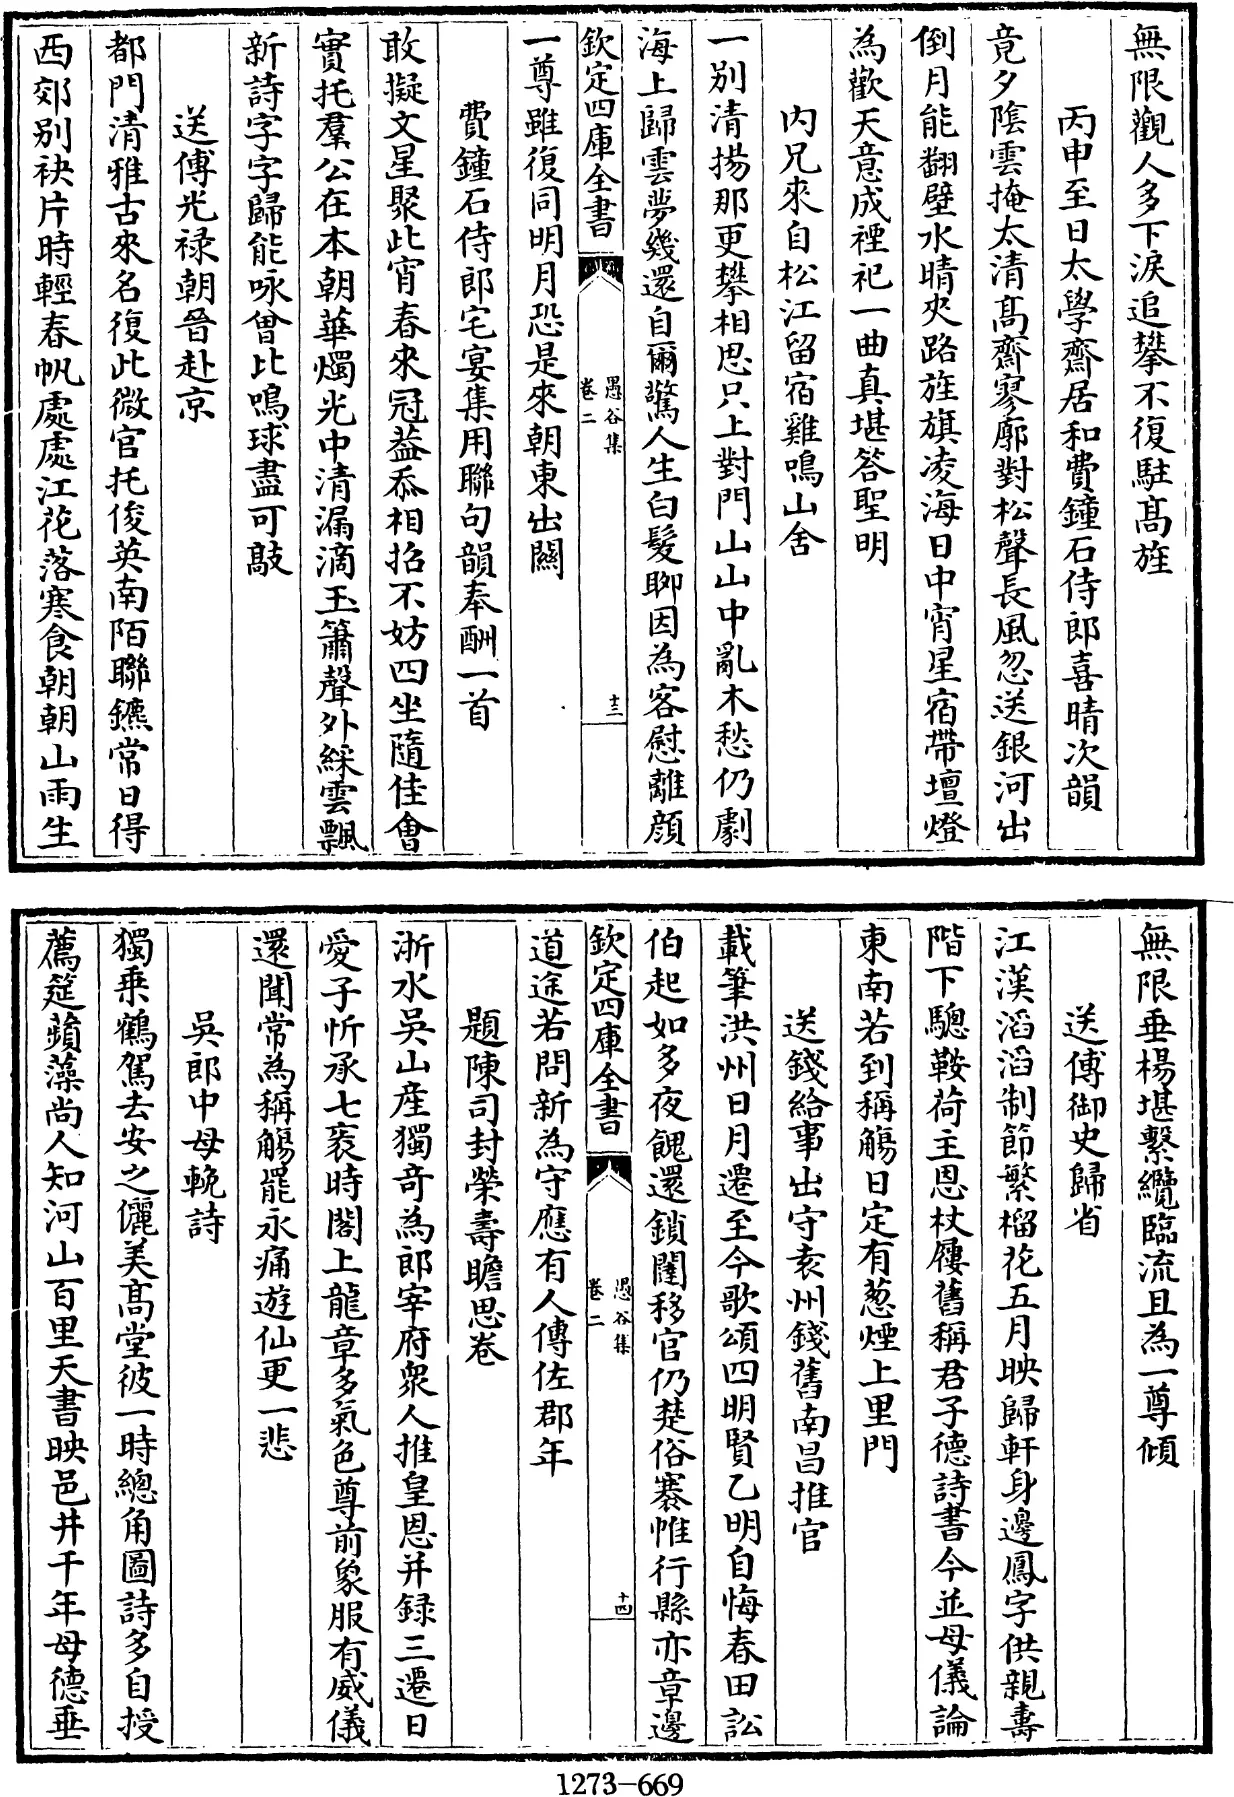 無限觀人多下淚追攀不復駐髙旌
丙申至日太學齋居和費鐘石侍郎喜晴次韻
竟夕陰雲掩太清髙齋寥廓對松聲長風忽送銀河出
倒月能翻璧水晴夾路旌旗凌海日中宵星宿帶壇燈
為歡天意成禋祀一曲真堪答聖明
内兄來自松江留宿雞鳴山舍
一別清揚那更攀相思只上對門山山中亂木愁仍劇
海上歸雲夢幾還自爾驚人生白髮聊因為客慰離顔
欽定四庫全書
愚谷集
卷二
十三
一尊雖復同明月恐是來朝東出闗
費鐘石侍郎宅宴集用聯句韻奉酬一首
敢擬文星聚此宵春來冠葢忝相招不妨四坐隨佳會
實托羣公在本朝華燭光中清漏滴玉簫聲外綵雲飄
新詩字字歸能咏曾比鳴球盡可敲
送傅光禄朝晉赴京
都門清雅古來名復此微官托俊英南陌聯鑣常日得
西郊别袂片時輕春帆處處江花落寒食朝朝山雨生
無限垂楊堪繫纜臨流且為一尊傾
送傅御史歸省
江漢滔滔制節繁榴花五月映歸軒身邊鳳字供親壽
階下驄鞍荷主恩杖屨舊稱君子德詩書今並母儀論
東南若到稱觴日定有葱煙上里門
送錢給事出守袁州錢舊南昌推官
載筆洪州日月遷至今歌頌四明賢乙明自悔春田訟
伯起如多夜餽還鎖闈移官仍楚俗褰帷行縣亦章邊
欽定四庫全書
愚谷集
卷二
十四
道途若問新為守應有人傳佐郡年
題陳司封榮壽瞻思卷
浙水吳山産獨奇為郎宰府衆人推皇恩并録三遷日
愛子忻承七袠時閣上龍章多氣色尊前象服有威儀
還聞常為稱觴罷永痛遊仙更一悲
吳郎中母輓詩
獨乘鶴駕去安之儷美髙堂彼一時總角圖詩多自授
薦筵蘋藻尚人知河山百里天書映邑井千年母德垂
1273-669